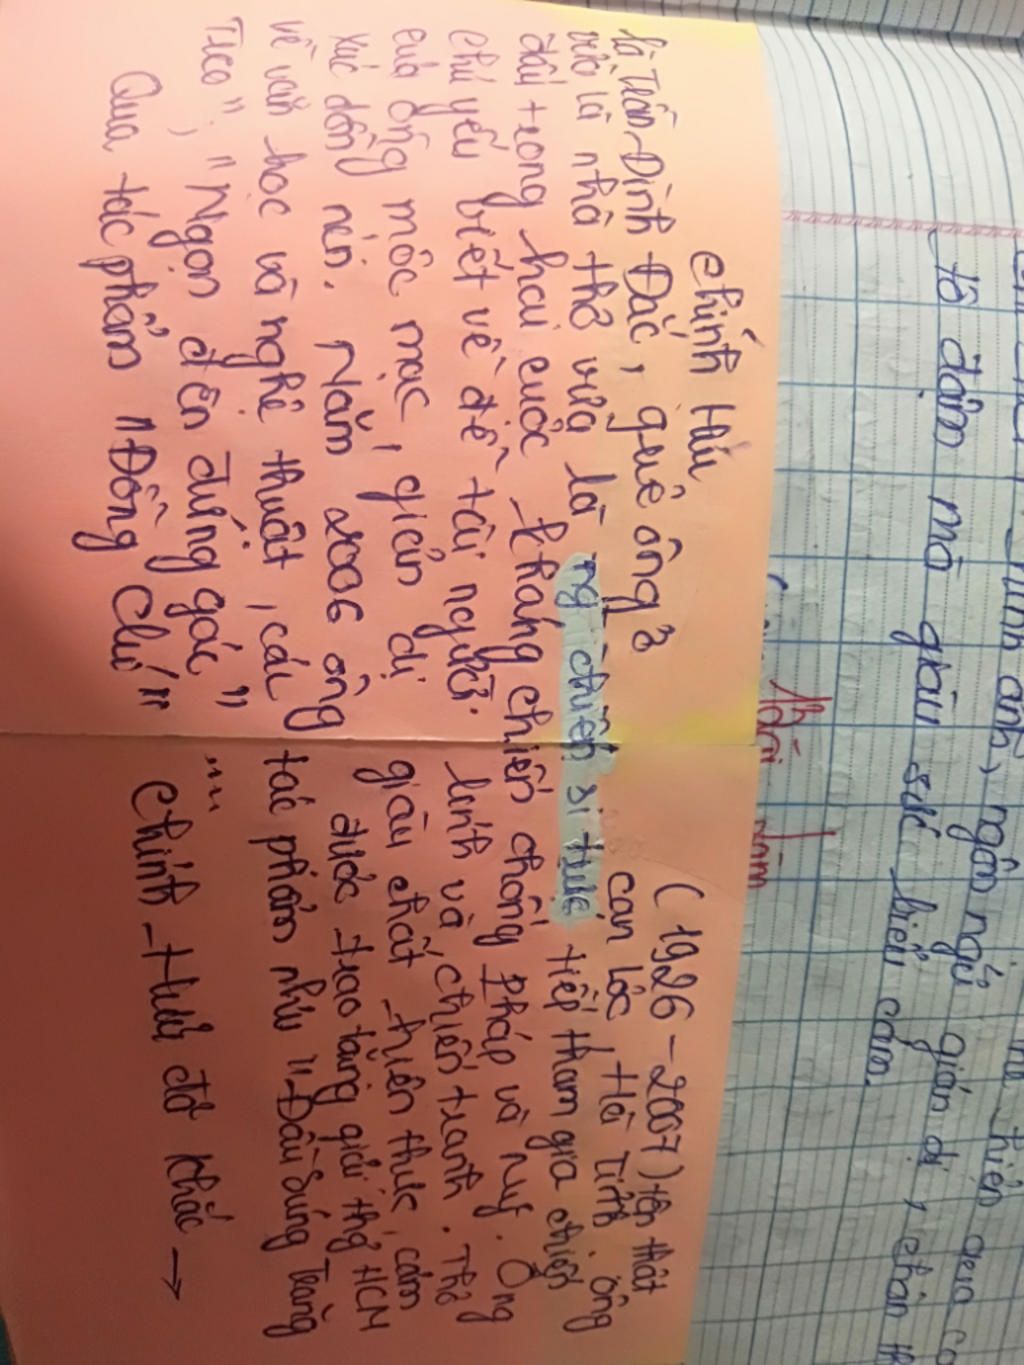 hình ảnh, ngôn ngữ giản dị, chân th
tô đậm mà giàu sức biểu cảm.
Chính Hữu (1926-2007) tên thật
là Trần Đình Đắc, quê ông ở Can Lộc Hà Tĩnh ông
vừa là nhà thơ vừa là ng chiến sĩ trực tiếp tham gia chiến
đấu trong hai cuộc kháng chiến chống Pháp và Mỹ. Ông
chủ yếu viết về đề tài người lính và chiến tranh. Thơ
của ông mộc mạc, giản dị giàu chất hiện thực, cảm
xúc dồn nén. Năm 2006 ông được trao tặng giải thg HCM
về văn học và nghệ thuật, các tác phẩm như "Đầu Súng Trăng
Treo", "Ngọn đèn đứng gác" ....
Qua tác phẩm "Đồng Chí" Chính Hữu đã khắc →